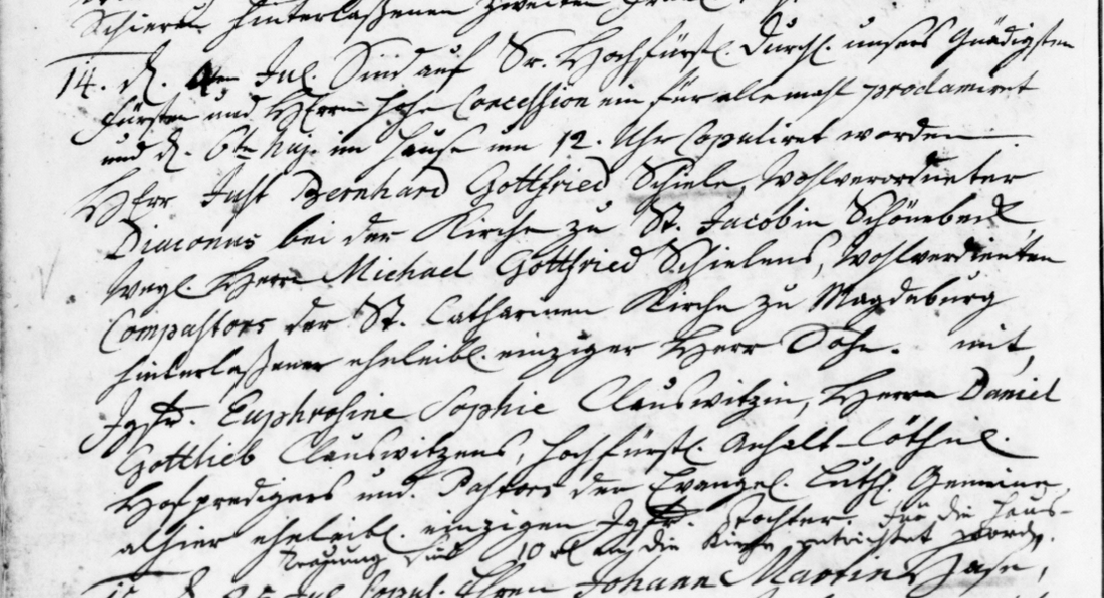 Schieren hinterlaßenen zweiten
14. d. 4ten Jul. Sind auf Sr. Hochfürstl. Durchl. unsers Gnädigsten
Fürsten und Herrn hohe Concession ein für allemahl proclamiret
und d. 6ten huj. im Hause um 12. Uhr Copuliret worden
Herr Just Bernhard Gottfried Schiele, Wohlverordneter
Diaconus bei der Kirche zu St. Jacob in Schönebeck
Weyl. Herrn Michael Gottfried Schielens, Wohlverdienten
Compastors der St. Catharinen Kirche zu Magdeburg
hinterlaßener eheleibl. einziger Herr Sohn. mit,
Jgfr. Euphrosine Sophie Clauswitzin, Herrn Daniel
Gottlieb Clauswitzens, Hochfürstl. Anhalt-Cöthnl.
Hofpredigers und Pastors der Evangel. Luth. Gemeine
alhier eheleibl. einzigen Jgfr. Tochter. Für die Haus-
Trauung sind 10 rl an die Kirche entrichtet word.
15. d. 25. Jul. Copul. Johann Martin Hase,